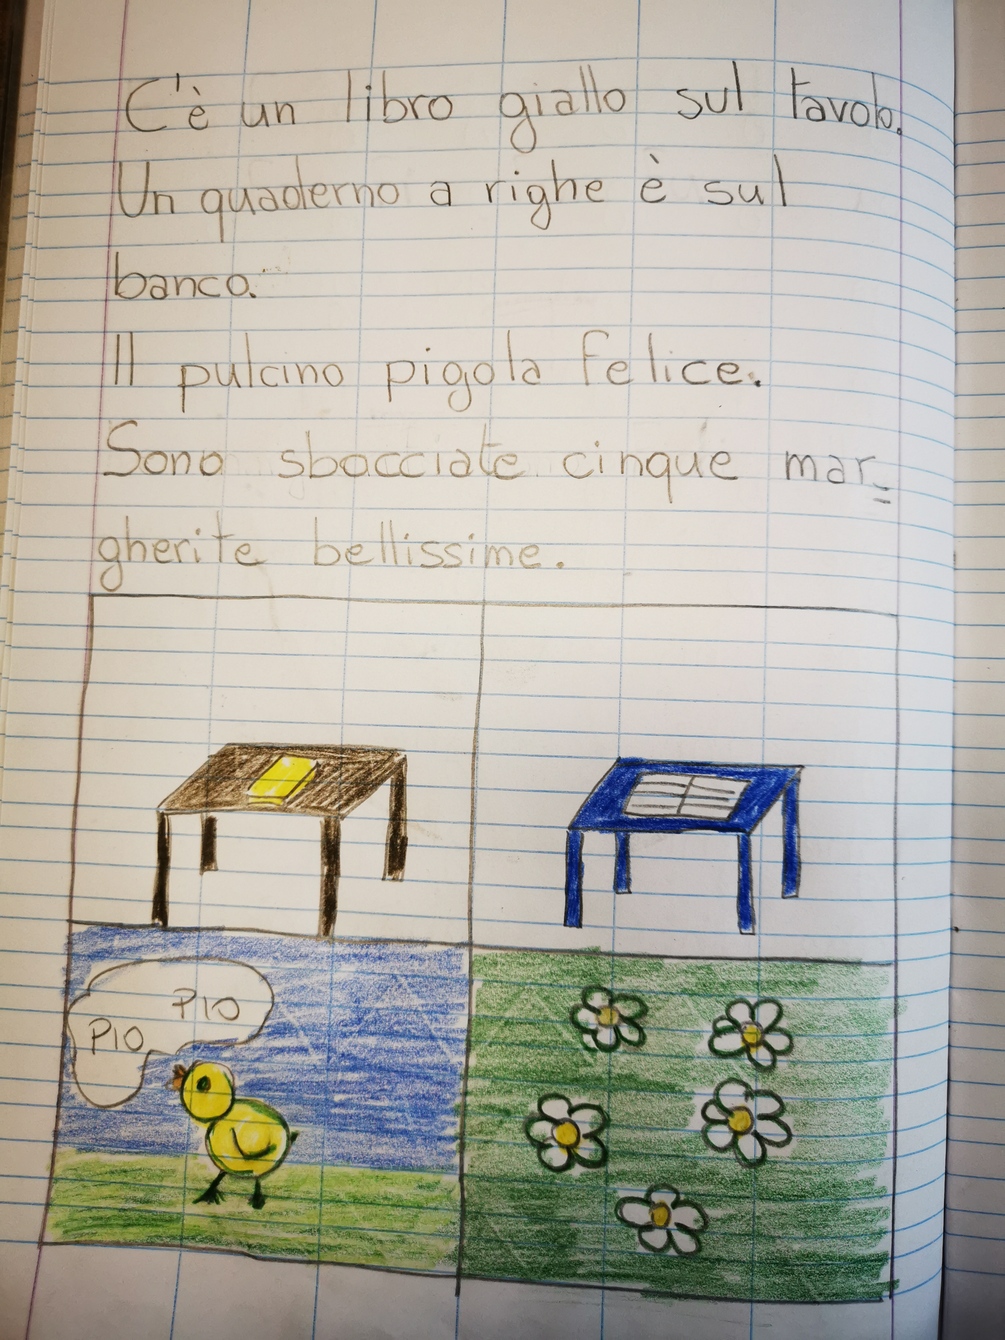 C'è un libro giallo sul tavolo.
Un quaderno a righe è sul
banco.
Il pulcino pigola felice.
Sono sbocciate cinque mar=
gherite bellissime.
PIO PIO